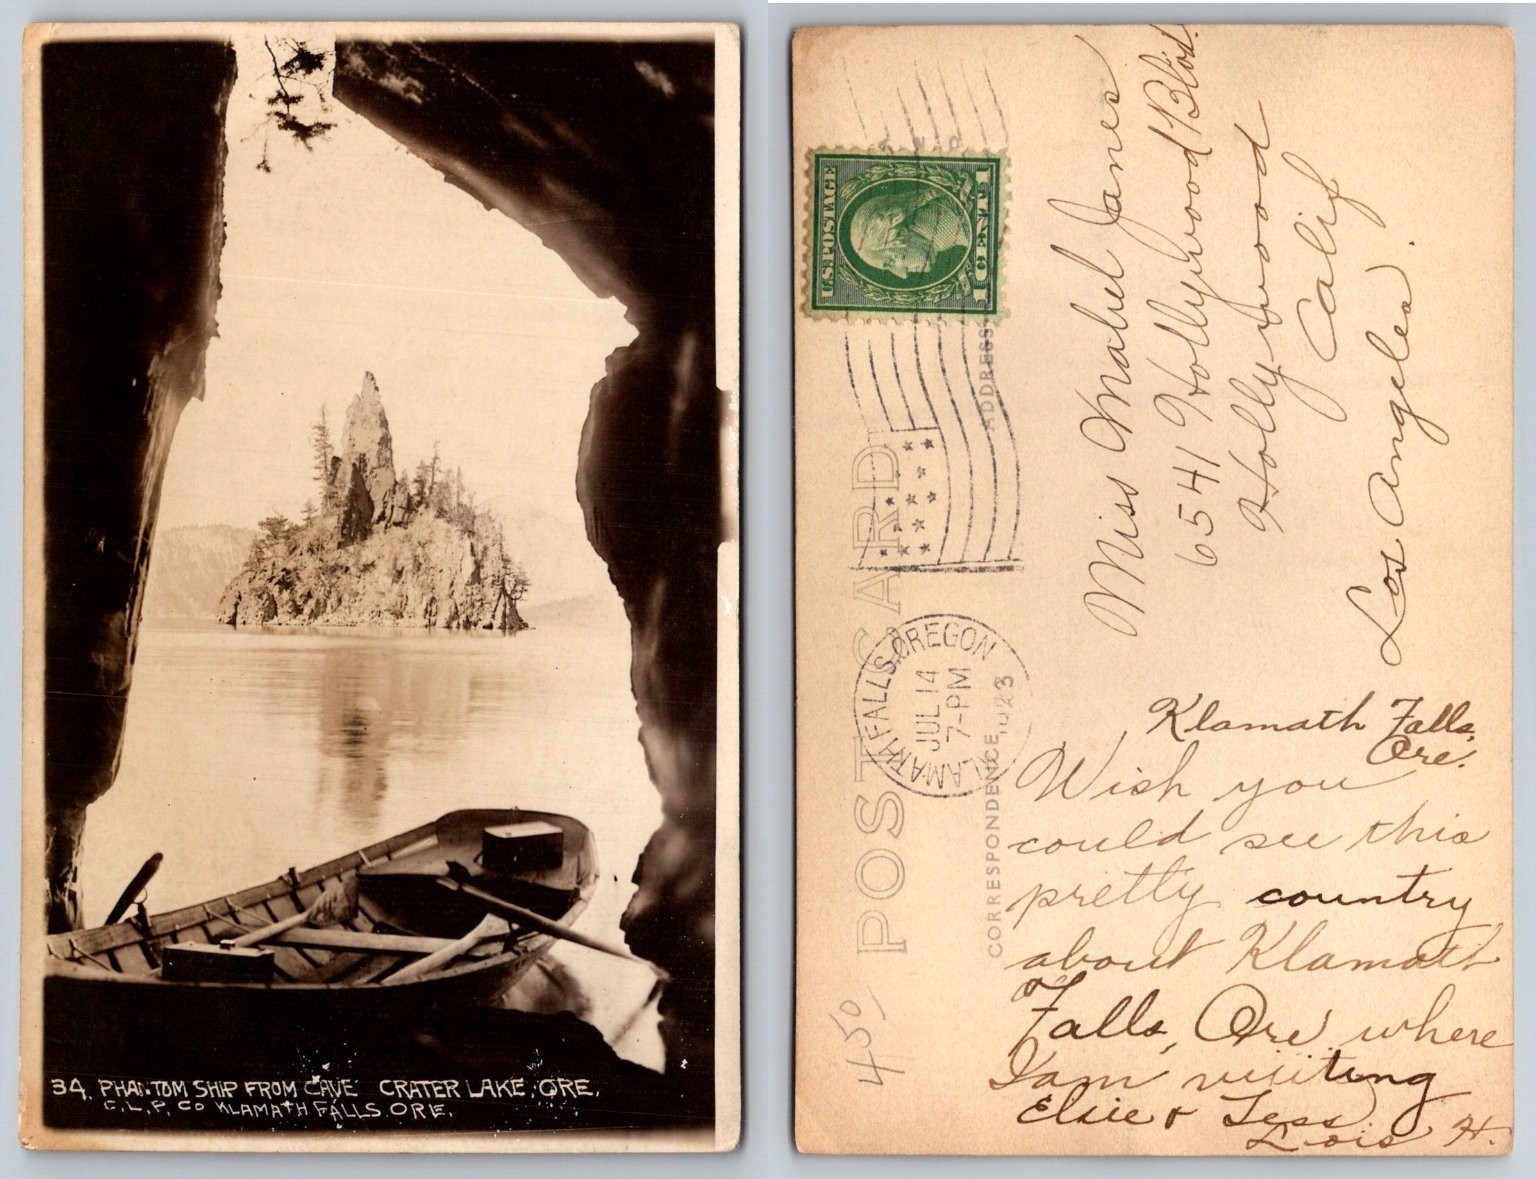 34. PHANTOM SHIP FROM CAVE CRATER LAKE, ORE.
C.L.P. CO KLAMATH FALLS ORE.
POST CARD
CORRESPONDENCE
ADDRESS
U.S. POSTAGE
1 CENT 1
KLAMATH FALLS, OREGON
JUL 14
7-PM
1923
Miss Mabel Janes
6541 Hollywood Blvd.
Hollywood
Calif
Los Angeles.
Klamath Falls,
Ore.
Wish you
could see this
pretty country
about Klamath
Falls, Ore where
I am visiting
Elsie & Tess
Lois H.
450